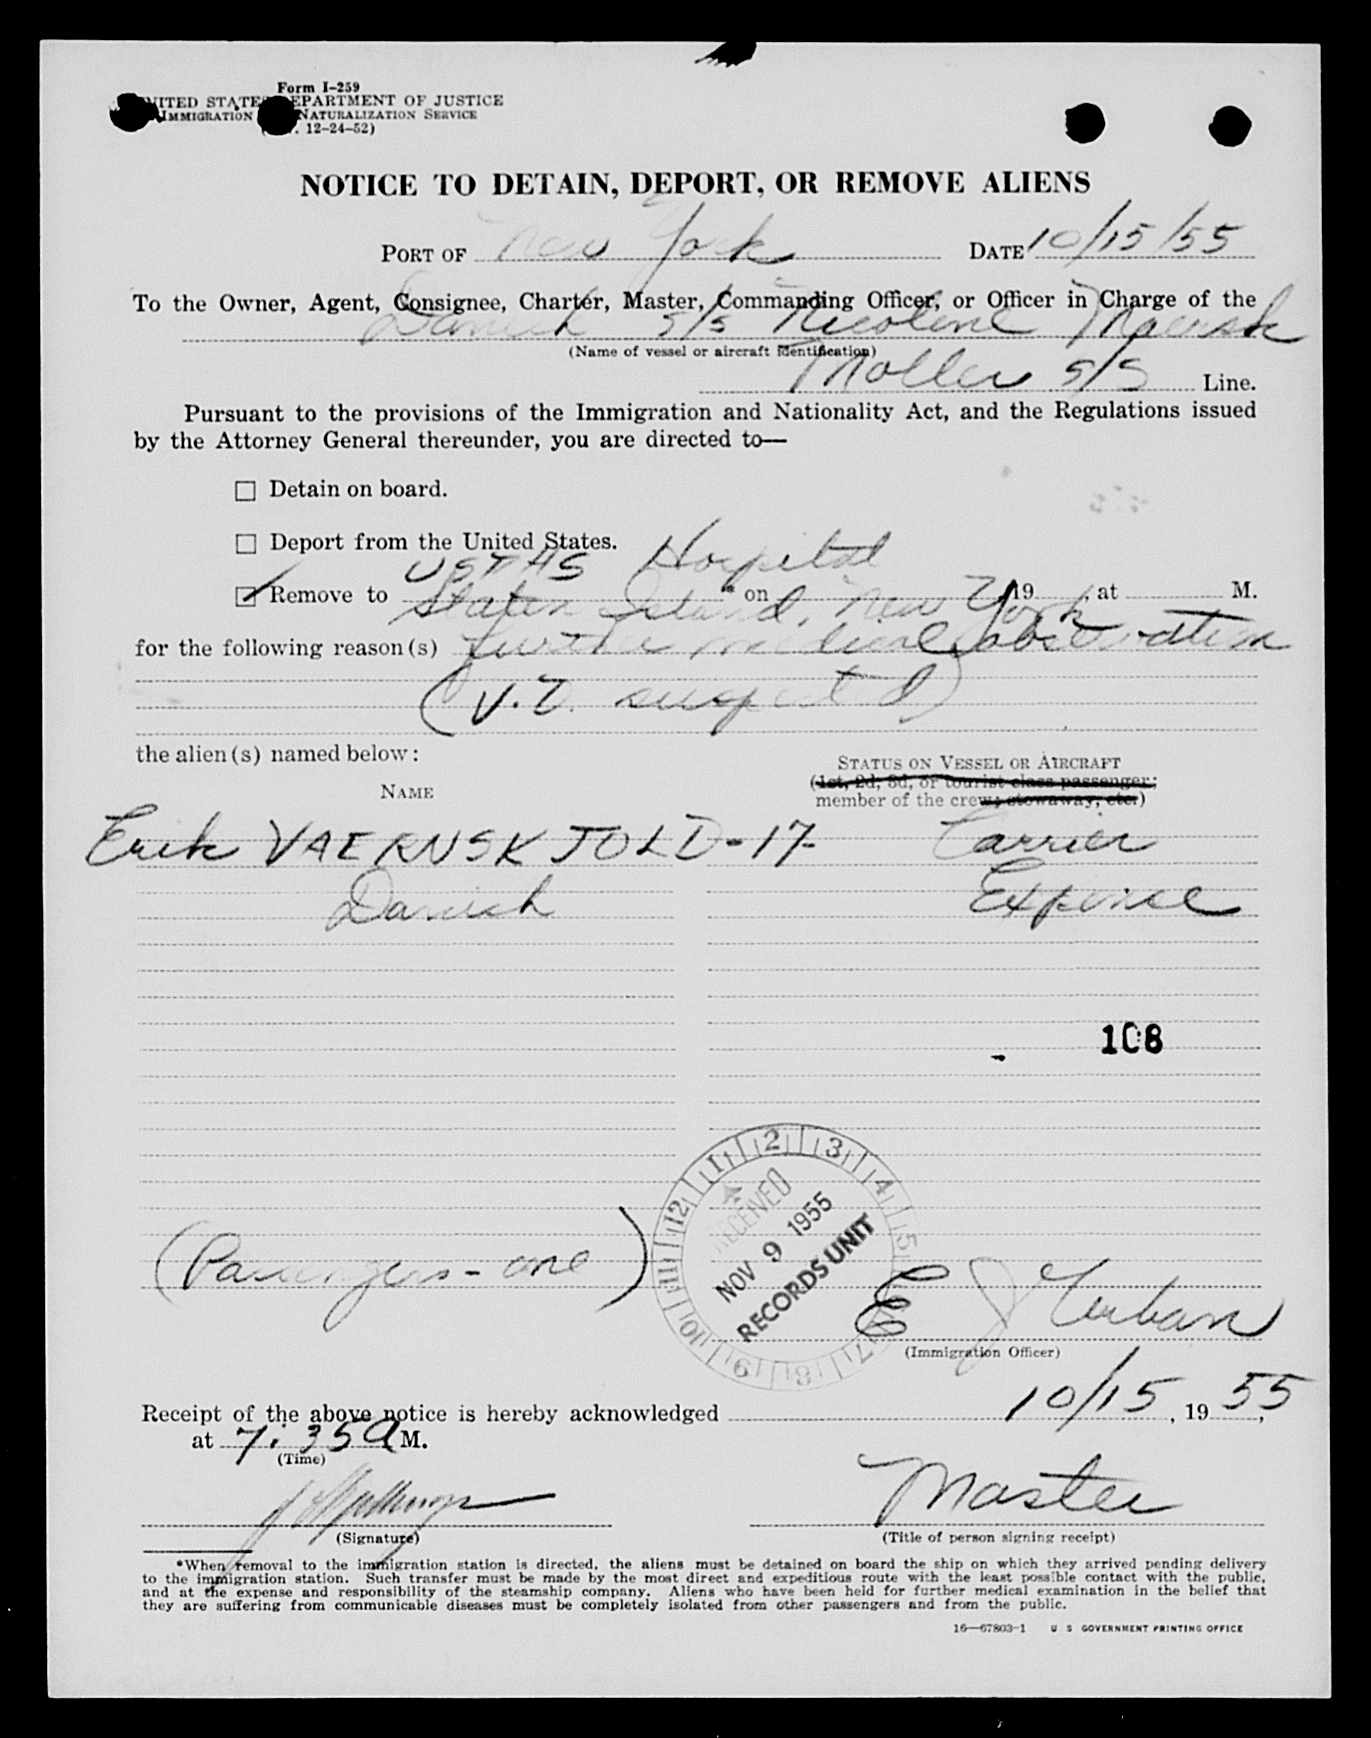 Form I-259
UNITED STATES DEPARTMENT OF JUSTICE
IMMIGRATION NATURALIZATION SERVICE
12-24-52)
NOTICE TO DETAIN, DEPORT, OR REMOVE ALIENS
PORT OF New York DATE 10/15/55
To the Owner, Agent, Consignee, Charter, Master, Commanding Officer, or Officer in Charge of the
Danish s/s Nicoline Maersk
(Name of vessel or aircraft identification)
Moller S/S Line.
Pursuant to the provisions of the Immigration and Nationality Act, and the Regulations issued
by the Attorney General thereunder, you are directed to—
☐ Detain on board.
☐ Deport from the United States.
USPHS Hospital
☑ Remove to * on 19 , at M.
Staten Island, New York
for the following reason(s) further medical observation
(V.D. suspected)
the alien(s) named below:
STATUS ON VESSEL OR AIRCRAFT
(1st, 2d, 3d, or tourist class passenger;
NAME
member of the crew; stowaway, etc.)
Erik VAERNSKJOLD-17- Carrier
Danish Expense
108
2 3 4 5 7 8 9 10 11 12 1
RECEIVED
NOV 9 1955
RECORDS UNIT
(Passengers - one)
E J Urban
(Immigration Officer)
Receipt of the above notice is hereby acknowledged 10/15, 19 55,
at 7:35 A M.
(Time)
Master
(Signature) (Title of person signing receipt)
*When removal to the immigration station is directed, the aliens must be detained on board the ship on which they arrived pending delivery
to the immigration station. Such transfer must be made by the most direct and expeditious route with the least possible contact with the public,
and at the expense and responsibility of the steamship company. Aliens who have been held for further medical examination in the belief that
they are suffering from communicable diseases must be completely isolated from other passengers and from the public.
16—67803-1 U S GOVERNMENT PRINTING OFFICE